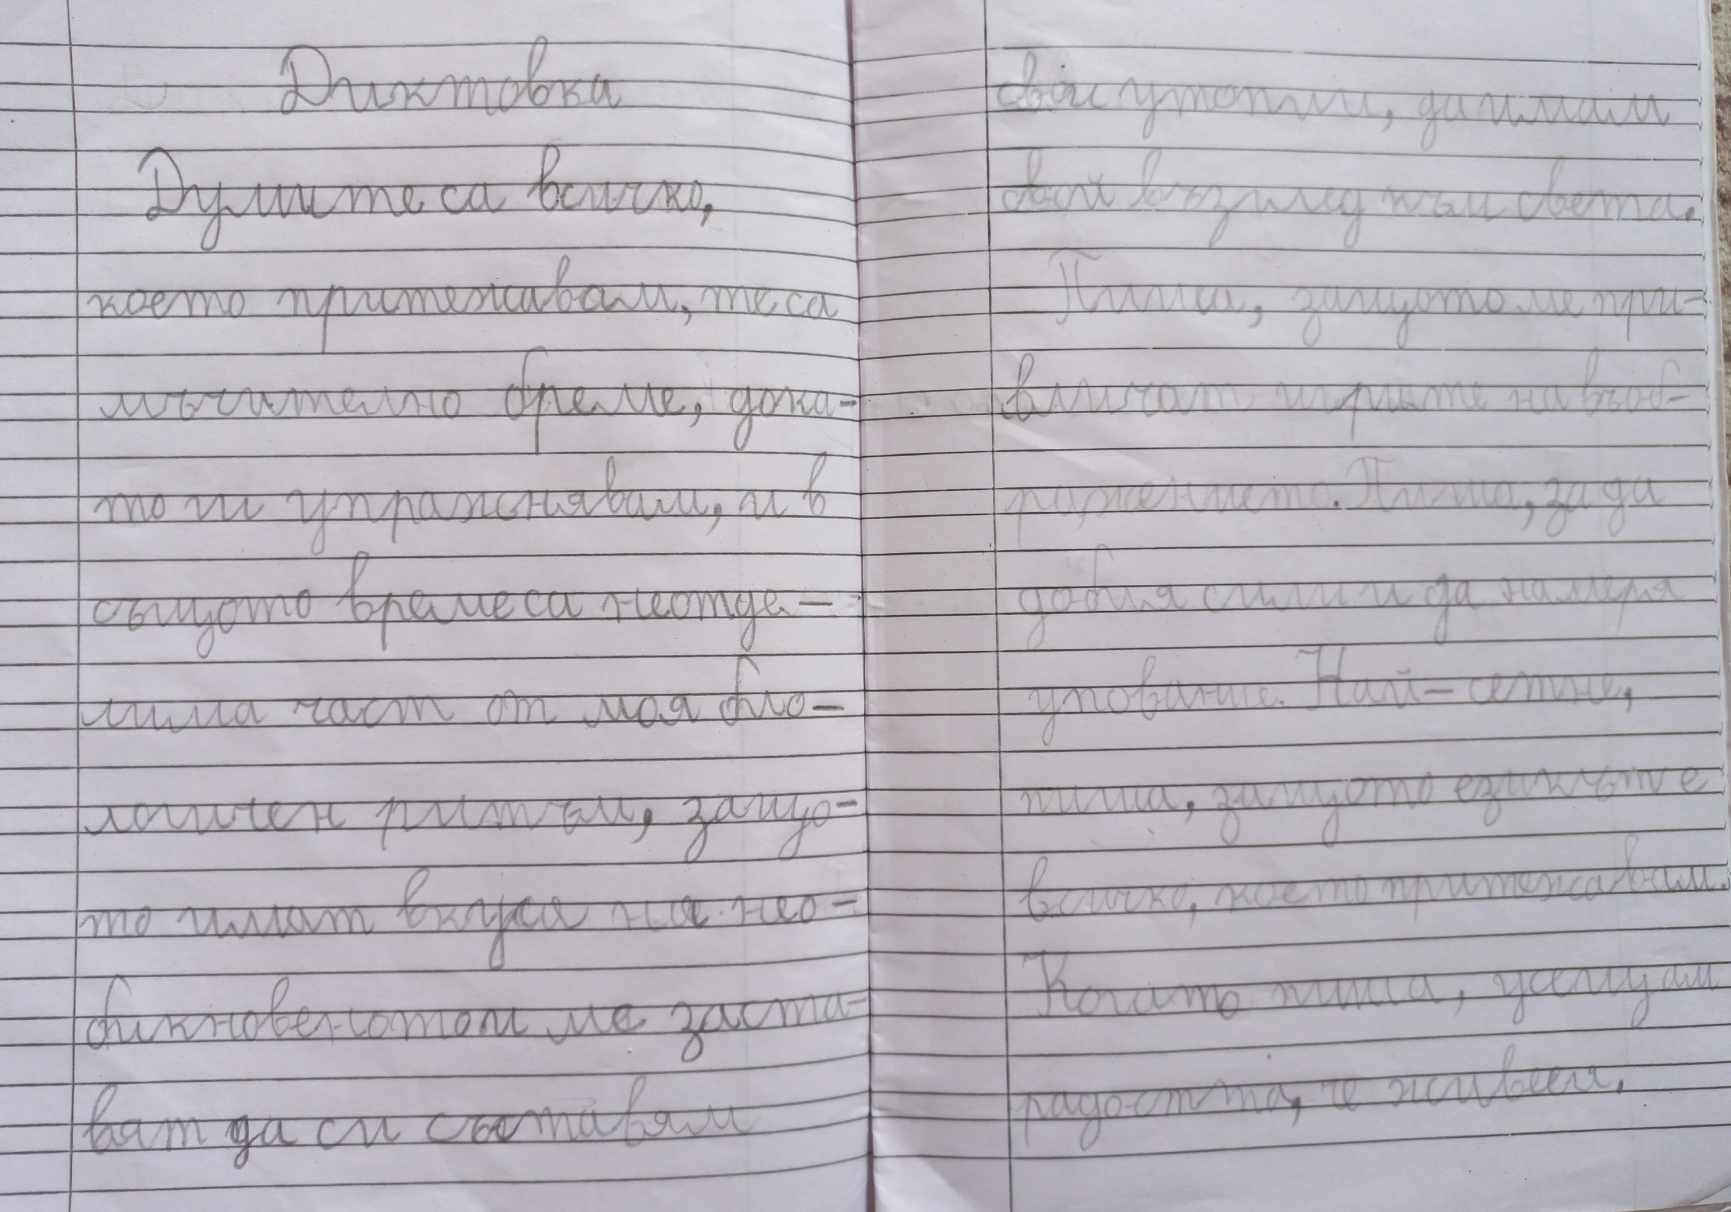 Диктовка
Думите са всичко,
което притежавам, те са
мъчително бреме, дока-
то ги упражнявам, и в
същото време са неотде-
лима част от моя био-
логичен ритъм, защо-
то имат вкуса на нео-
бикновеното и ме заста-
вят да си съставям
свои утопии, да имам
свой възглед към света.
Пиша, защото ме при-
вличат игрите на въоб-
ражението. Пиша, за да
добия сили и да намеря
упование. Най-сетне,
пиша, защото езикът е
всичко, което притежавам.
Когато пиша, усещам
радостта, че живея.